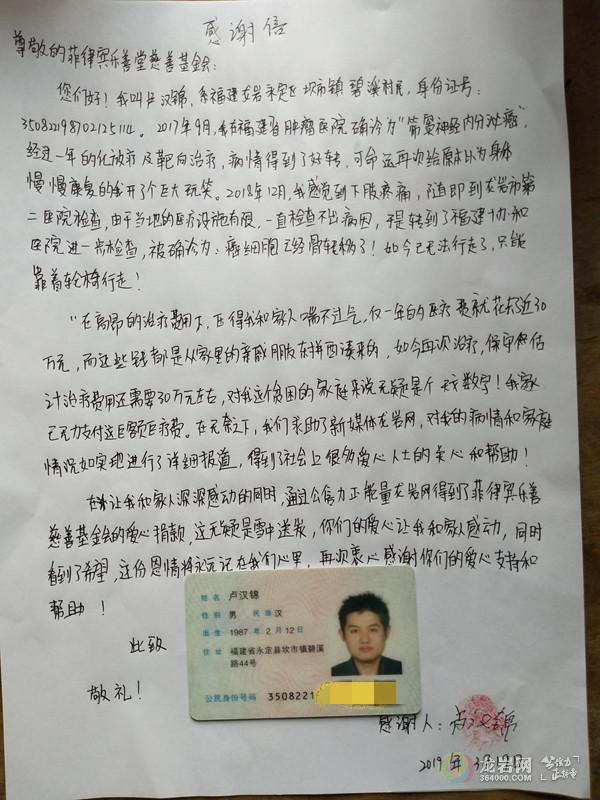 感谢信
尊敬的菲律宾乐善堂慈善基金会:
您们好!我叫卢汉锦,系福建龙岩永定区坎市镇碧溪村民,身份证号:
350822198702125114。2017年9月,我在福建省肿瘤医院确诊为“筛窦神经内分泌癌”,
经过一年的化放疗及靶向治疗,病情得到了好转,可命运再次给原本以为身体
慢慢康复的我开了个巨大玩笑。2018年12月,我感觉到下肢疼痛,随即到龙岩市第
二医院检查,由于当地的医疗设施有限,一直检查不出病因,于是转到了福建协和
医院进一步检查,被确诊为:癌细胞已经骨转移了!如今已无法行走了,只能
靠着轮椅行走!
在高昂的治疗费用下,压得我和家人喘不过气,仅一年的医疗费就花去近30
万元,而这些钱都是从家里的亲戚朋友在拼西凑来的,如今再次治疗,保守估
计治疗费用还需要30万元左右,对我这个贫困的家庭来说无疑是个天文数字!我家
已无力支付这巨额医疗费。在无奈之下,我们求助了新媒体龙岩网,对我的病情和家庭
情况如实地进行了详细报道,得到了社会上很多爱心人士的关心和帮助!
在让我和家人深深感动的同时,通过公信力正能量龙岩网得到了菲律宾乐善
慈善基金会的爱心捐款,这无疑是雪中送炭,你们的爱心让我和家人感动,同时
看到了希望,这份恩情将永远记在我们心里,再次衷心感谢你们的爱心支持和
帮助!
此致
敬礼!
姓名 卢汉锦
性别 男 民族 汉
出生 1987 年 2 月 12 日
住址 福建省永定县坎市镇碧溪
路44号
公民身份号码 3508221
感谢人:卢汉锦
2019年3月
龙岩网
364000.com
公信力
正能量